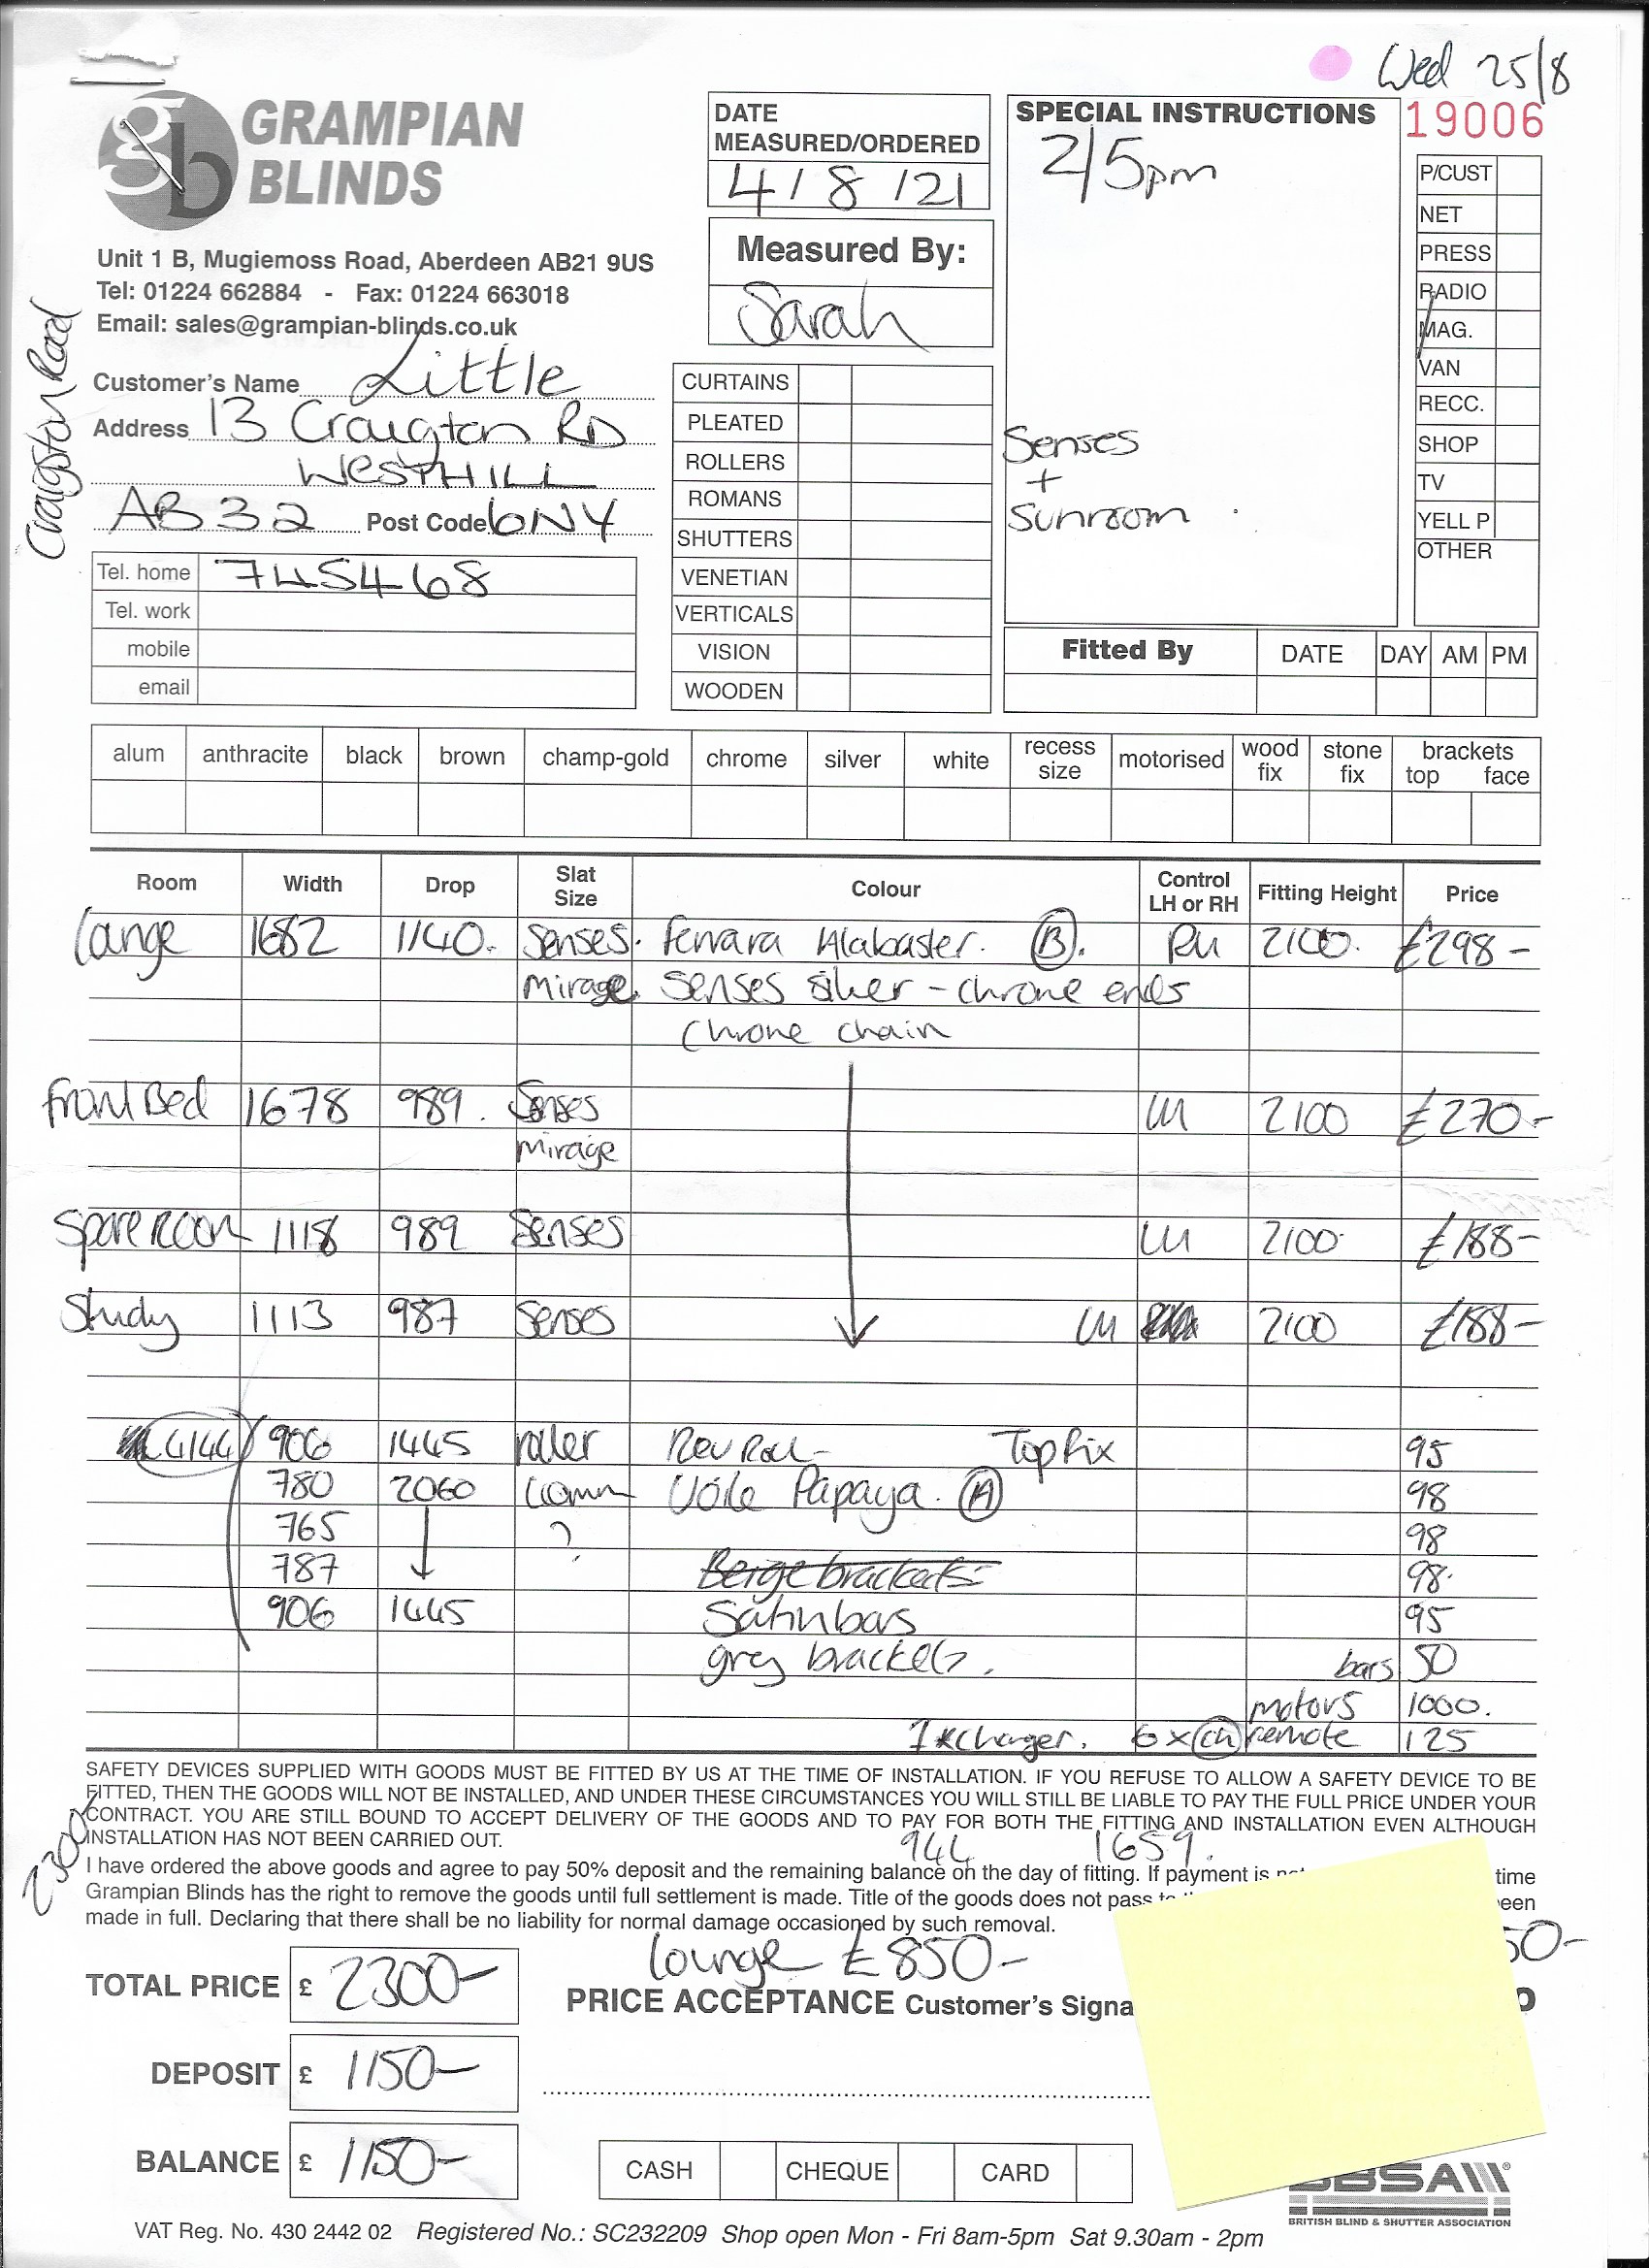 Wed 25/8
GRAMPIAN
BLINDS
Unit 1 B, Mugiemoss Road, Aberdeen AB21 9US
Tel: 01224 662884 - Fax: 01224 663018
Email: sales@grampian-blinds.co.uk
DATE
MEASURED/ORDERED
4/8/21
Measured By:
Sarah
SPECIAL INSTRUCTIONS
2/5pm
Senses
+
Sunroom
19006
P/CUST
NET
PRESS
RADIO
MAG.
VAN
RECC.
SHOP
TV
YELL P
OTHER
Craigston Road
Customer's Name Little
Address 13 Craigton RD
WESTHILL
AB32 Post Code 6NY
Tel. home 745468
Tel. work
mobile
email
CURTAINS
PLEATED
ROLLERS
ROMANS
SHUTTERS
VENETIAN
VERTICALS
VISION
WOODEN
Fitted By DATE DAY AM PM
alum anthracite black brown champ-gold chrome silver white recess size motorised wood fix stone fix brackets top face
Room Width Drop Slat Size Colour Control LH or RH Fitting Height Price
Lounge 1682 1140. Senses. Ferrara Alabaster. (B). RH 2100. £298-
Mirage. Senses silver - chrome ends
Chrome chain
Front Bed 1678 989. Senses LH 2100 £270-
Mirage
Spare Room 1118 989 Senses LH 2100 £188-
Study 1113 987 Senses LH 2100 £188-
4144 906 1445 roller Rev Roll- Top Fix 95
780 2060 Voile Papaya. (A) 98
765 ? 98
787 Beige brackets 98.
906 1445 Satin bars 95
grey brackets. bars 50
motors 1000.
1xcharger. 6x (ch) remote 125
SAFETY DEVICES SUPPLIED WITH GOODS MUST BE FITTED BY US AT THE TIME OF INSTALLATION. IF YOU REFUSE TO ALLOW A SAFETY DEVICE TO BE
FITTED, THEN THE GOODS WILL NOT BE INSTALLED, AND UNDER THESE CIRCUMSTANCES YOU WILL STILL BE LIABLE TO PAY THE FULL PRICE UNDER YOUR
CONTRACT. YOU ARE STILL BOUND TO ACCEPT DELIVERY OF THE GOODS AND TO PAY FOR BOTH THE FITTING AND INSTALLATION EVEN ALTHOUGH
INSTALLATION HAS NOT BEEN CARRIED OUT.
2300
944 1659.
I have ordered the above goods and agree to pay 50% deposit and the remaining balance on the day of fitting. If payment is time
Grampian Blinds has the right to remove the goods until full settlement is made. Title of the goods does not pass been
made in full. Declaring that there shall be no liability for normal damage occasioned by such removal.
lounge £850-
50-
TOTAL PRICE £ 2300-
PRICE ACCEPTANCE Customer's Signa
DEPOSIT £ 1150-
BALANCE £ 1150-
CASH CHEQUE CARD
BBSA
BRITISH BLIND & SHUTTER ASSOCIATION
VAT Reg. No. 430 2442 02 Registered No.: SC232209 Shop open Mon - Fri 8am-5pm Sat 9.30am - 2pm